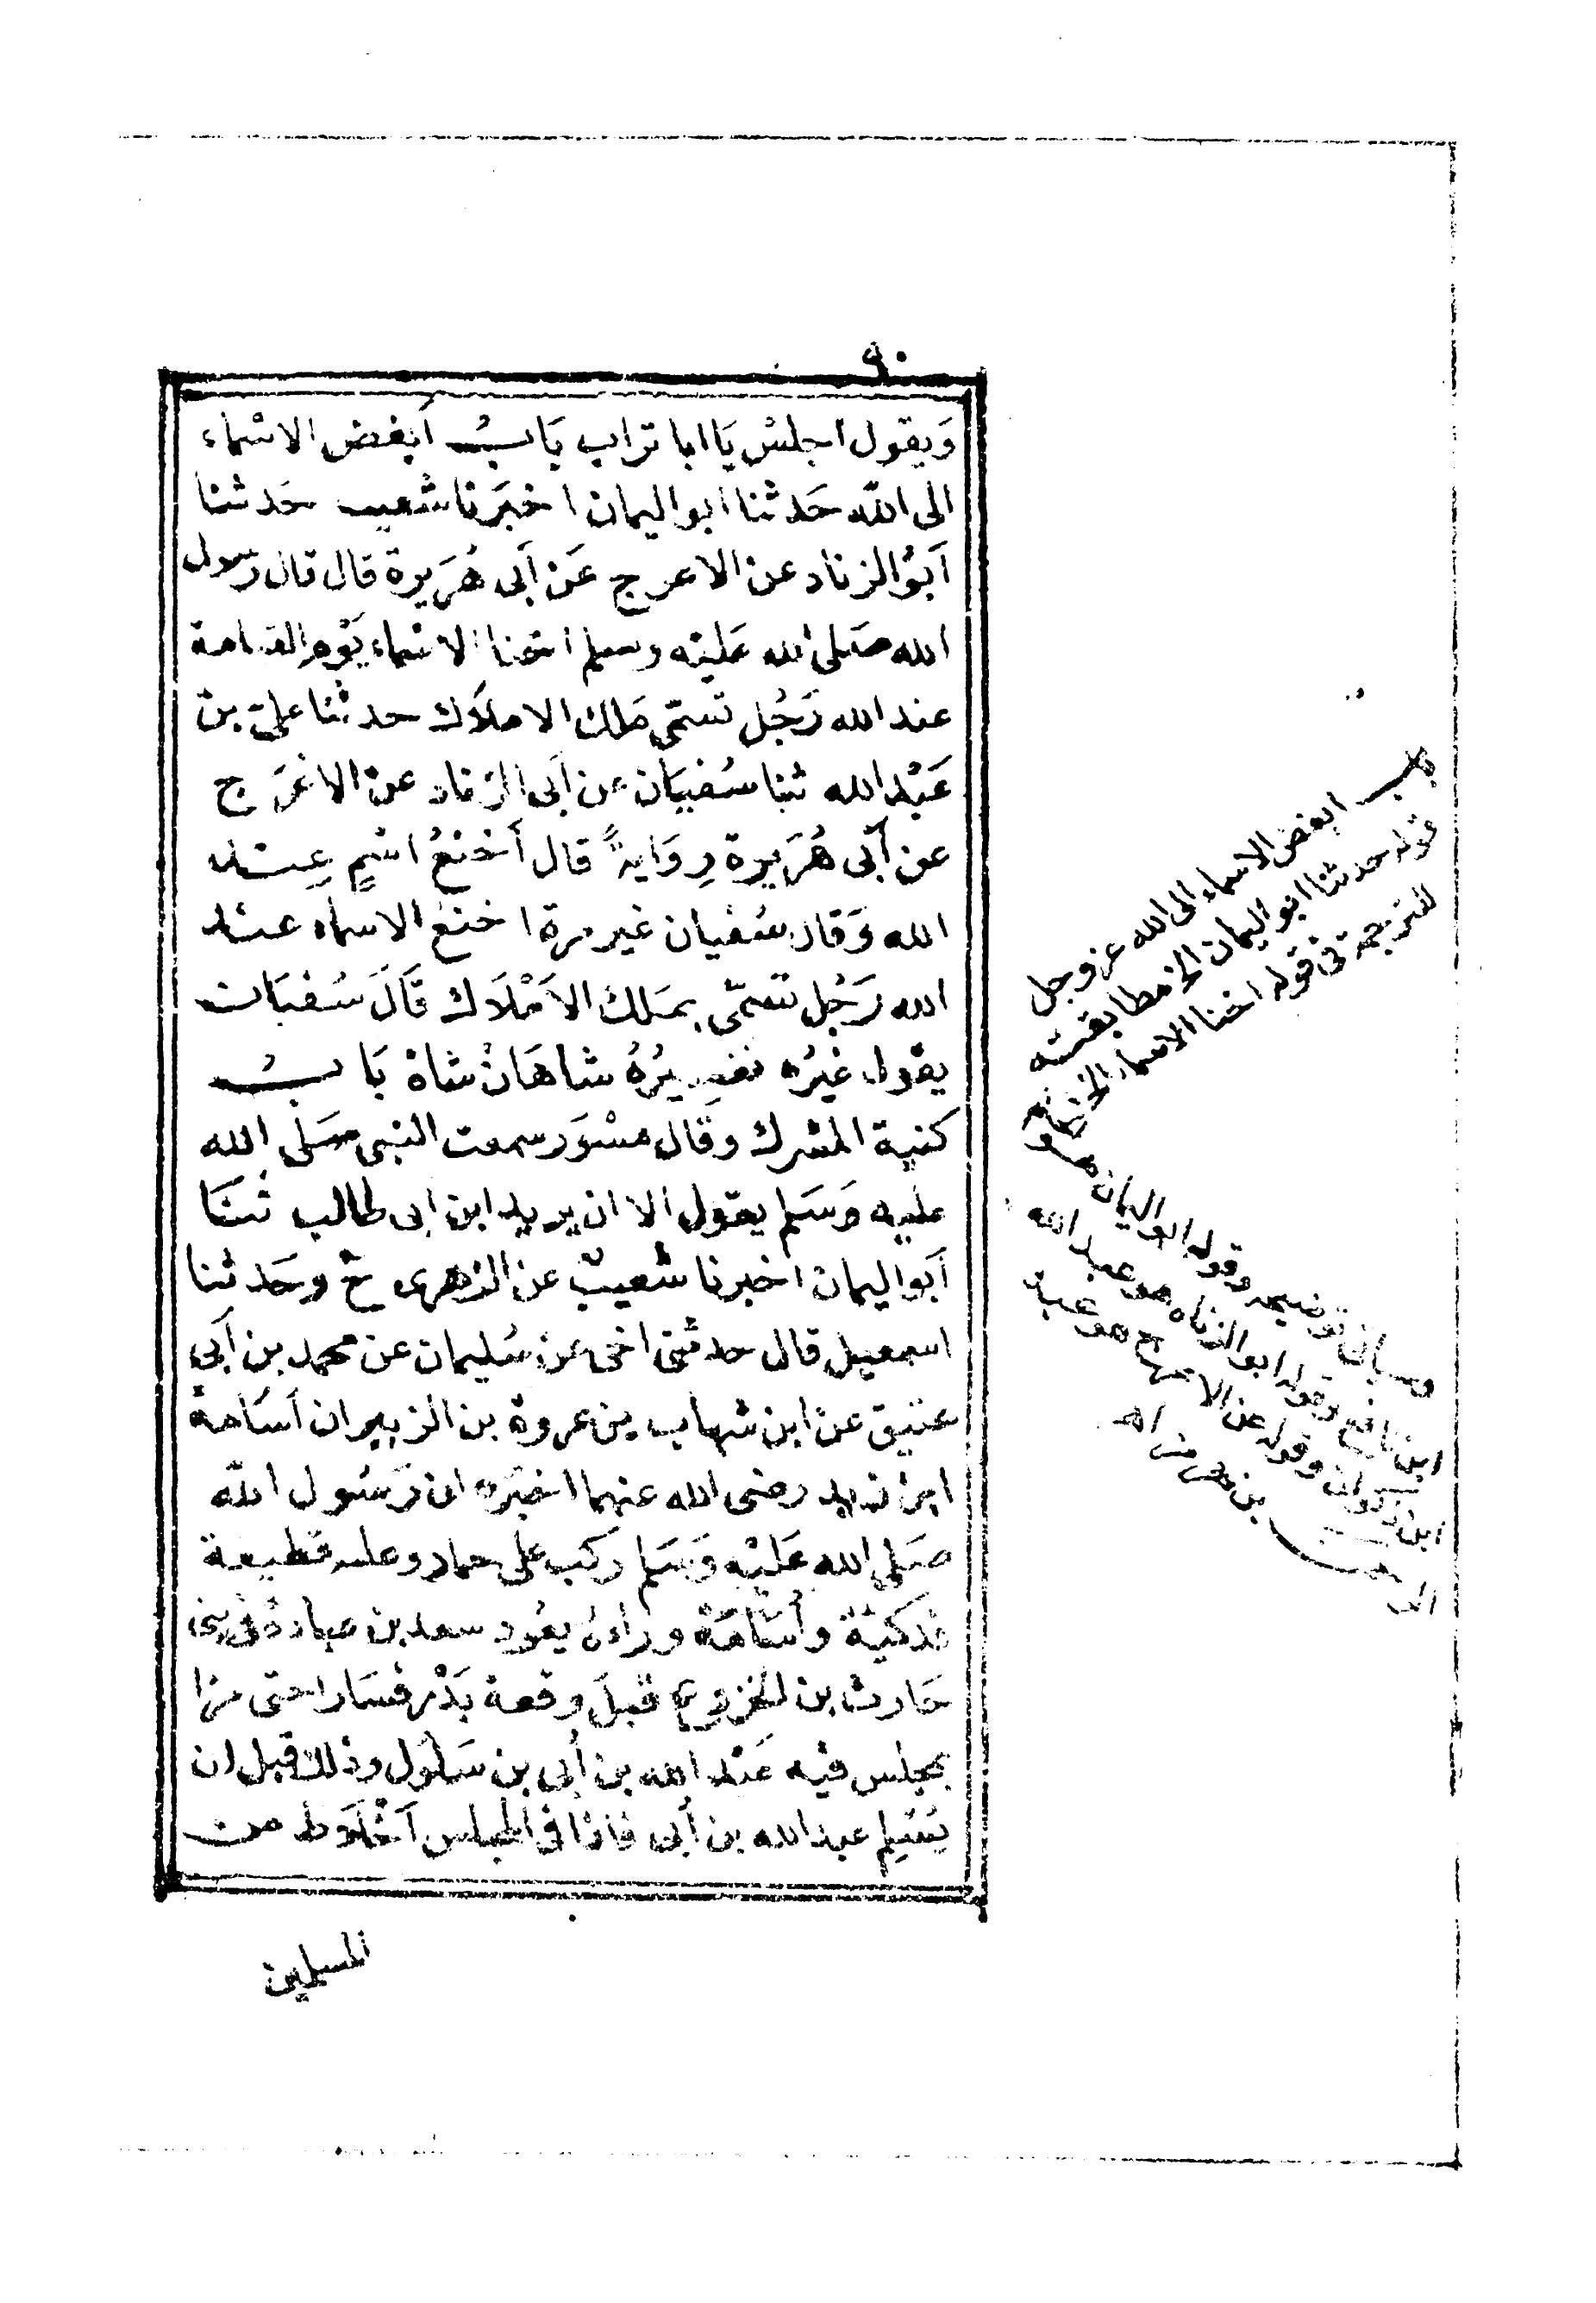 ٩٠
وَيقول اجلسْ يَا ابا تراب بَابُ أبغض الاسْماء
الى اللّه حَدثنا ابو اليمان اخبَرنا شعيب حَدثنا
أبُو الزناد عن الاعرج عَن أبى هُرَيرة قال قال رَسول
الله صَلى الله عَليْه وسلم اخنا الاسْماء يَوْم القيامة
عند الله رَجُل تسمّى مَلك الاملَاك حدثنا علىّ بن
عَبْد الله ثنا سُفيَان عن أبى الزناد عن الاعْرَج
عن أبى هُرَيرة رِوَايةً قال أخنعُ اسْمٍ عِند
الله وَقال سُفيان غير مرة اخنعُ الاسماء عند
الله رَجُل تسمّى بمَلك الاَمْلَاك قَالَ سُفيَان
يقول غيرُه تفسِيرُهُ شاهَانْ شاهْ بَابُ
كنية المشرك وقال مسْوَر سمعت النبى صَلى الله
عليه وَسَلم يقول الا ان يريد ابن ابى طالب ثنَنَا
أبو اليمان اخبرنا شعيبٌ عن الزهرى ح وحَدثنا
اسمعيل قال حدثنى اخى عن سُليمان عن محمد بن أبى
عتيق عن ابن شهاب عن عروة بن الزبير ان أسَامة
ابن زيد رضى الله عنهما اخبَره ان رَسُول اللّه
صَلى الله عَليْه وَسَلم ركب على حمار وعليه قطيفة
فدكيّة وأسَامَة وراءه يعُود سعد بن عبادة فى بنى
حَارث بن الخزرج قبلَ وقعة بَدْر فسَارا حتى مرا
بمجلس فيْه عَبْد الله بن أبى بن سَلول وذلك قبل ان
يُسْلِم عبد الله بن أبى فاذا فى المجلس أخْلَاط من
المسلمين
باب ابغض الاسماء الى الله عز وجل
قوله حدثنا ابو اليمان الخ مطابقته
للترجمة فى قوله اخنا الاسماء الخ
وسيأتى توضيحه وقوله ابو اليمان هو
ابن نافع وقوله ابو الزناد هو عبد الله
ابن ذكوان وقوله عن الاعرج هو عبد
الرحمن بن هرمز اهـ